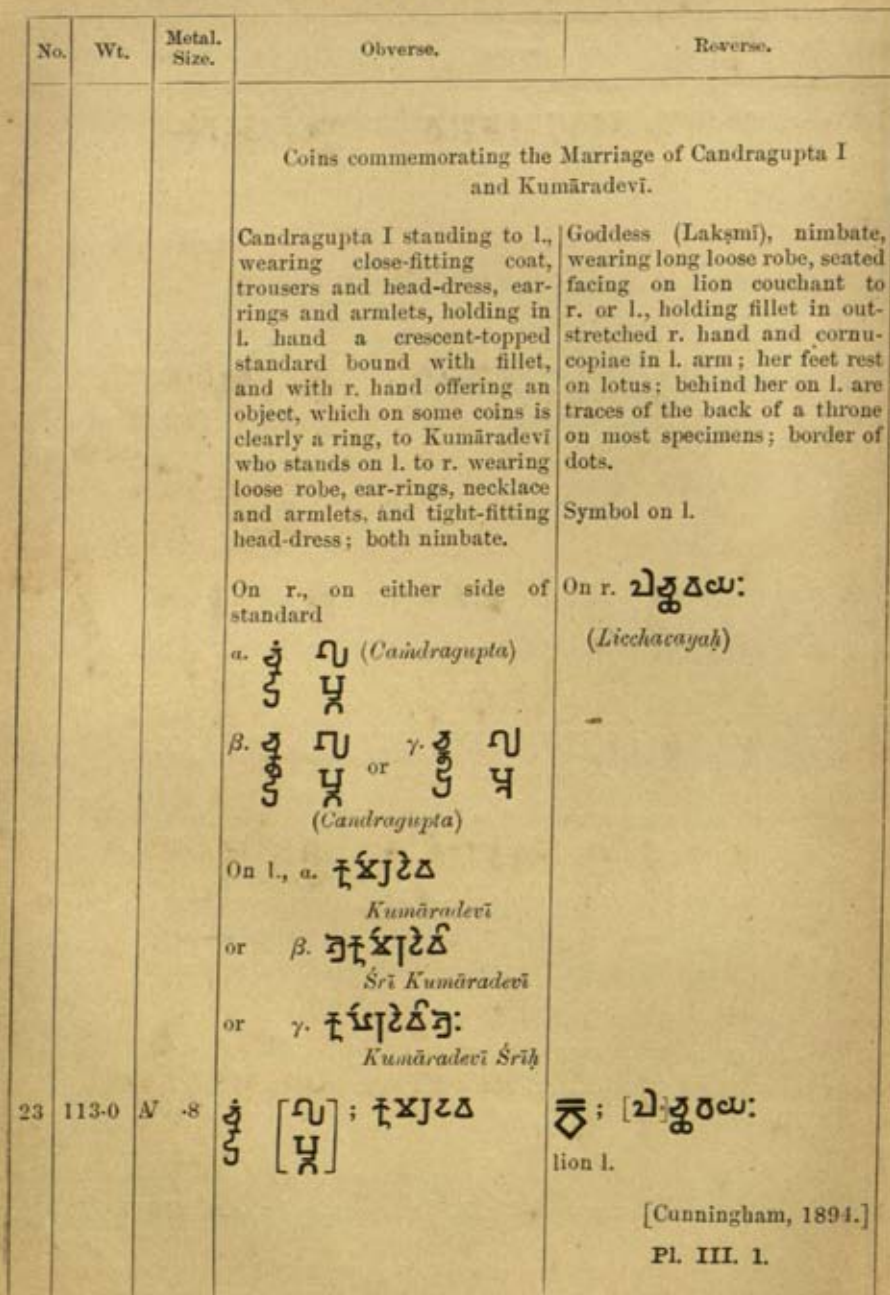 No. Wt. Metal. Size. Obverse. Reverse.
Coins commemorating the Marriage of Candragupta I
and Kumāradevī.
Candragupta I standing to l.,
wearing close-fitting coat,
trousers and head-dress, ear-
rings and armlets, holding in
l. hand a crescent-topped
standard bound with fillet,
and with r. hand offering an
object, which on some coins is
clearly a ring, to Kumāradevī
who stands on l. to r. wearing
loose robe, ear-rings, necklace
and armlets, and tight-fitting
head-dress; both nimbate.
On r., on either side of
standard
α. (Caṁdragupta)
β. or γ.
(Candragupta)
On l., α.
Kumāradevī
or β.
Śrī Kumāradevī
or γ.
Kumāradevī Śrīḥ
Goddess (Lakṣmī), nimbate,
wearing long loose robe, seated
facing on lion couchant to
r. or l., holding fillet in out-
stretched r. hand and cornu-
copiae in l. arm; her feet rest
on lotus; behind her on l. are
traces of the back of a throne
on most specimens; border of
dots.
Symbol on l.
On r.
(Licchacayaḥ)
23 113·0 AV ·8
lion l.
[Cunningham, 1894.]
Pl. III. 1.